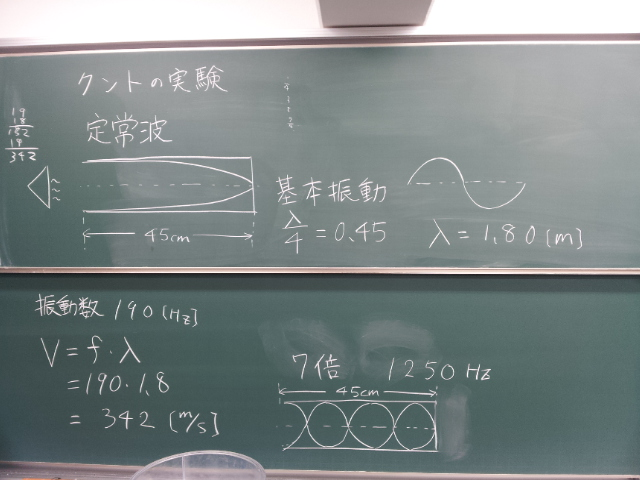 クントの実験
定常波
19
18
152
19
342
45cm
基本振動
λ/4 = 0.45
λ = 1.80 [m]
振動数 190 [Hz]
V = f・λ
= 190・1.8
= 342 [m/s]
7倍 1250 Hz
45cm